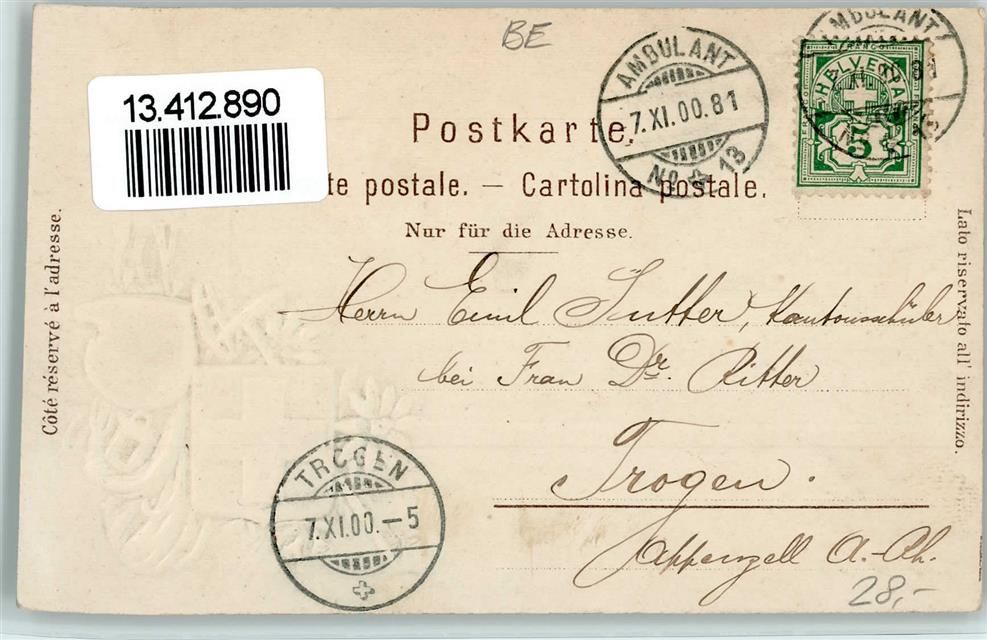 BE
13.412.890
AMBULANT
7.XI.00.81
No 13
AMBULANT
81
13
HELVETIA
FRANCO
5
Postkarte.
te postale. — Cartolina postale.
Nur für die Adresse.
Côté réservé à l'adresse.
Lato riservato all' indirizzo.
Herrn Emil Sutter, Kantonsschüler
bei Frau Dr. Ritter
Trogen.
Appenzell A.-Rh.
TROGEN
7.XI.00.–5
28,-